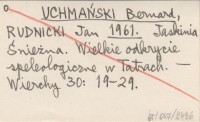 UCHMAŃSKI Bernard,
RUDNICKI Jan 1961. Jaskinia
Śnieżna. Wielkie odkrycie
speleologiczne w Tatrach. —
Wierchy 30: 19-29.